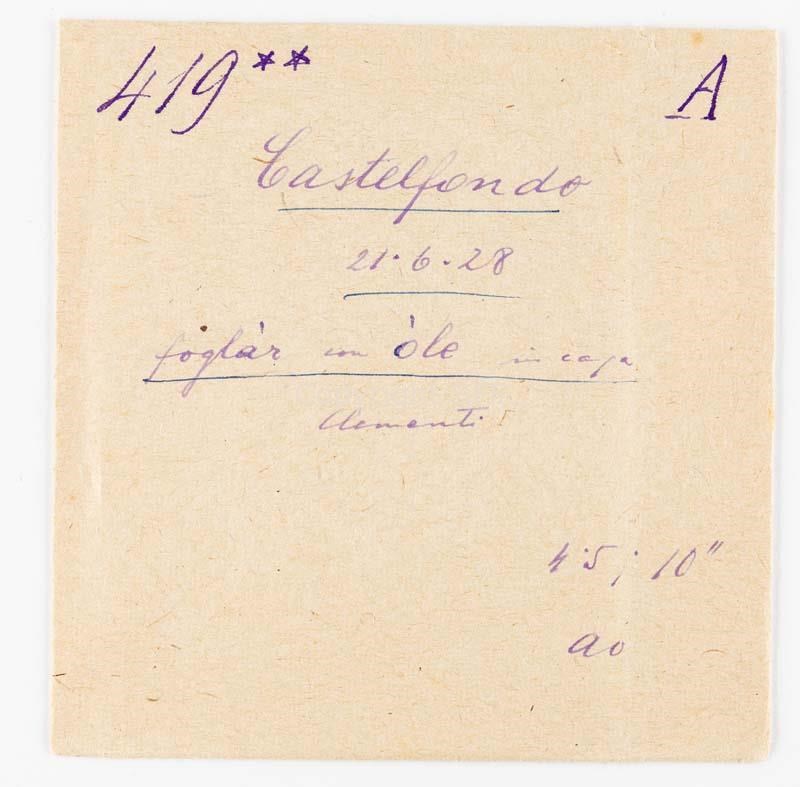 419** A
Castelfondo
21·6·28
foglàr con òle in casa
Clementi
4·5; 10"
ao